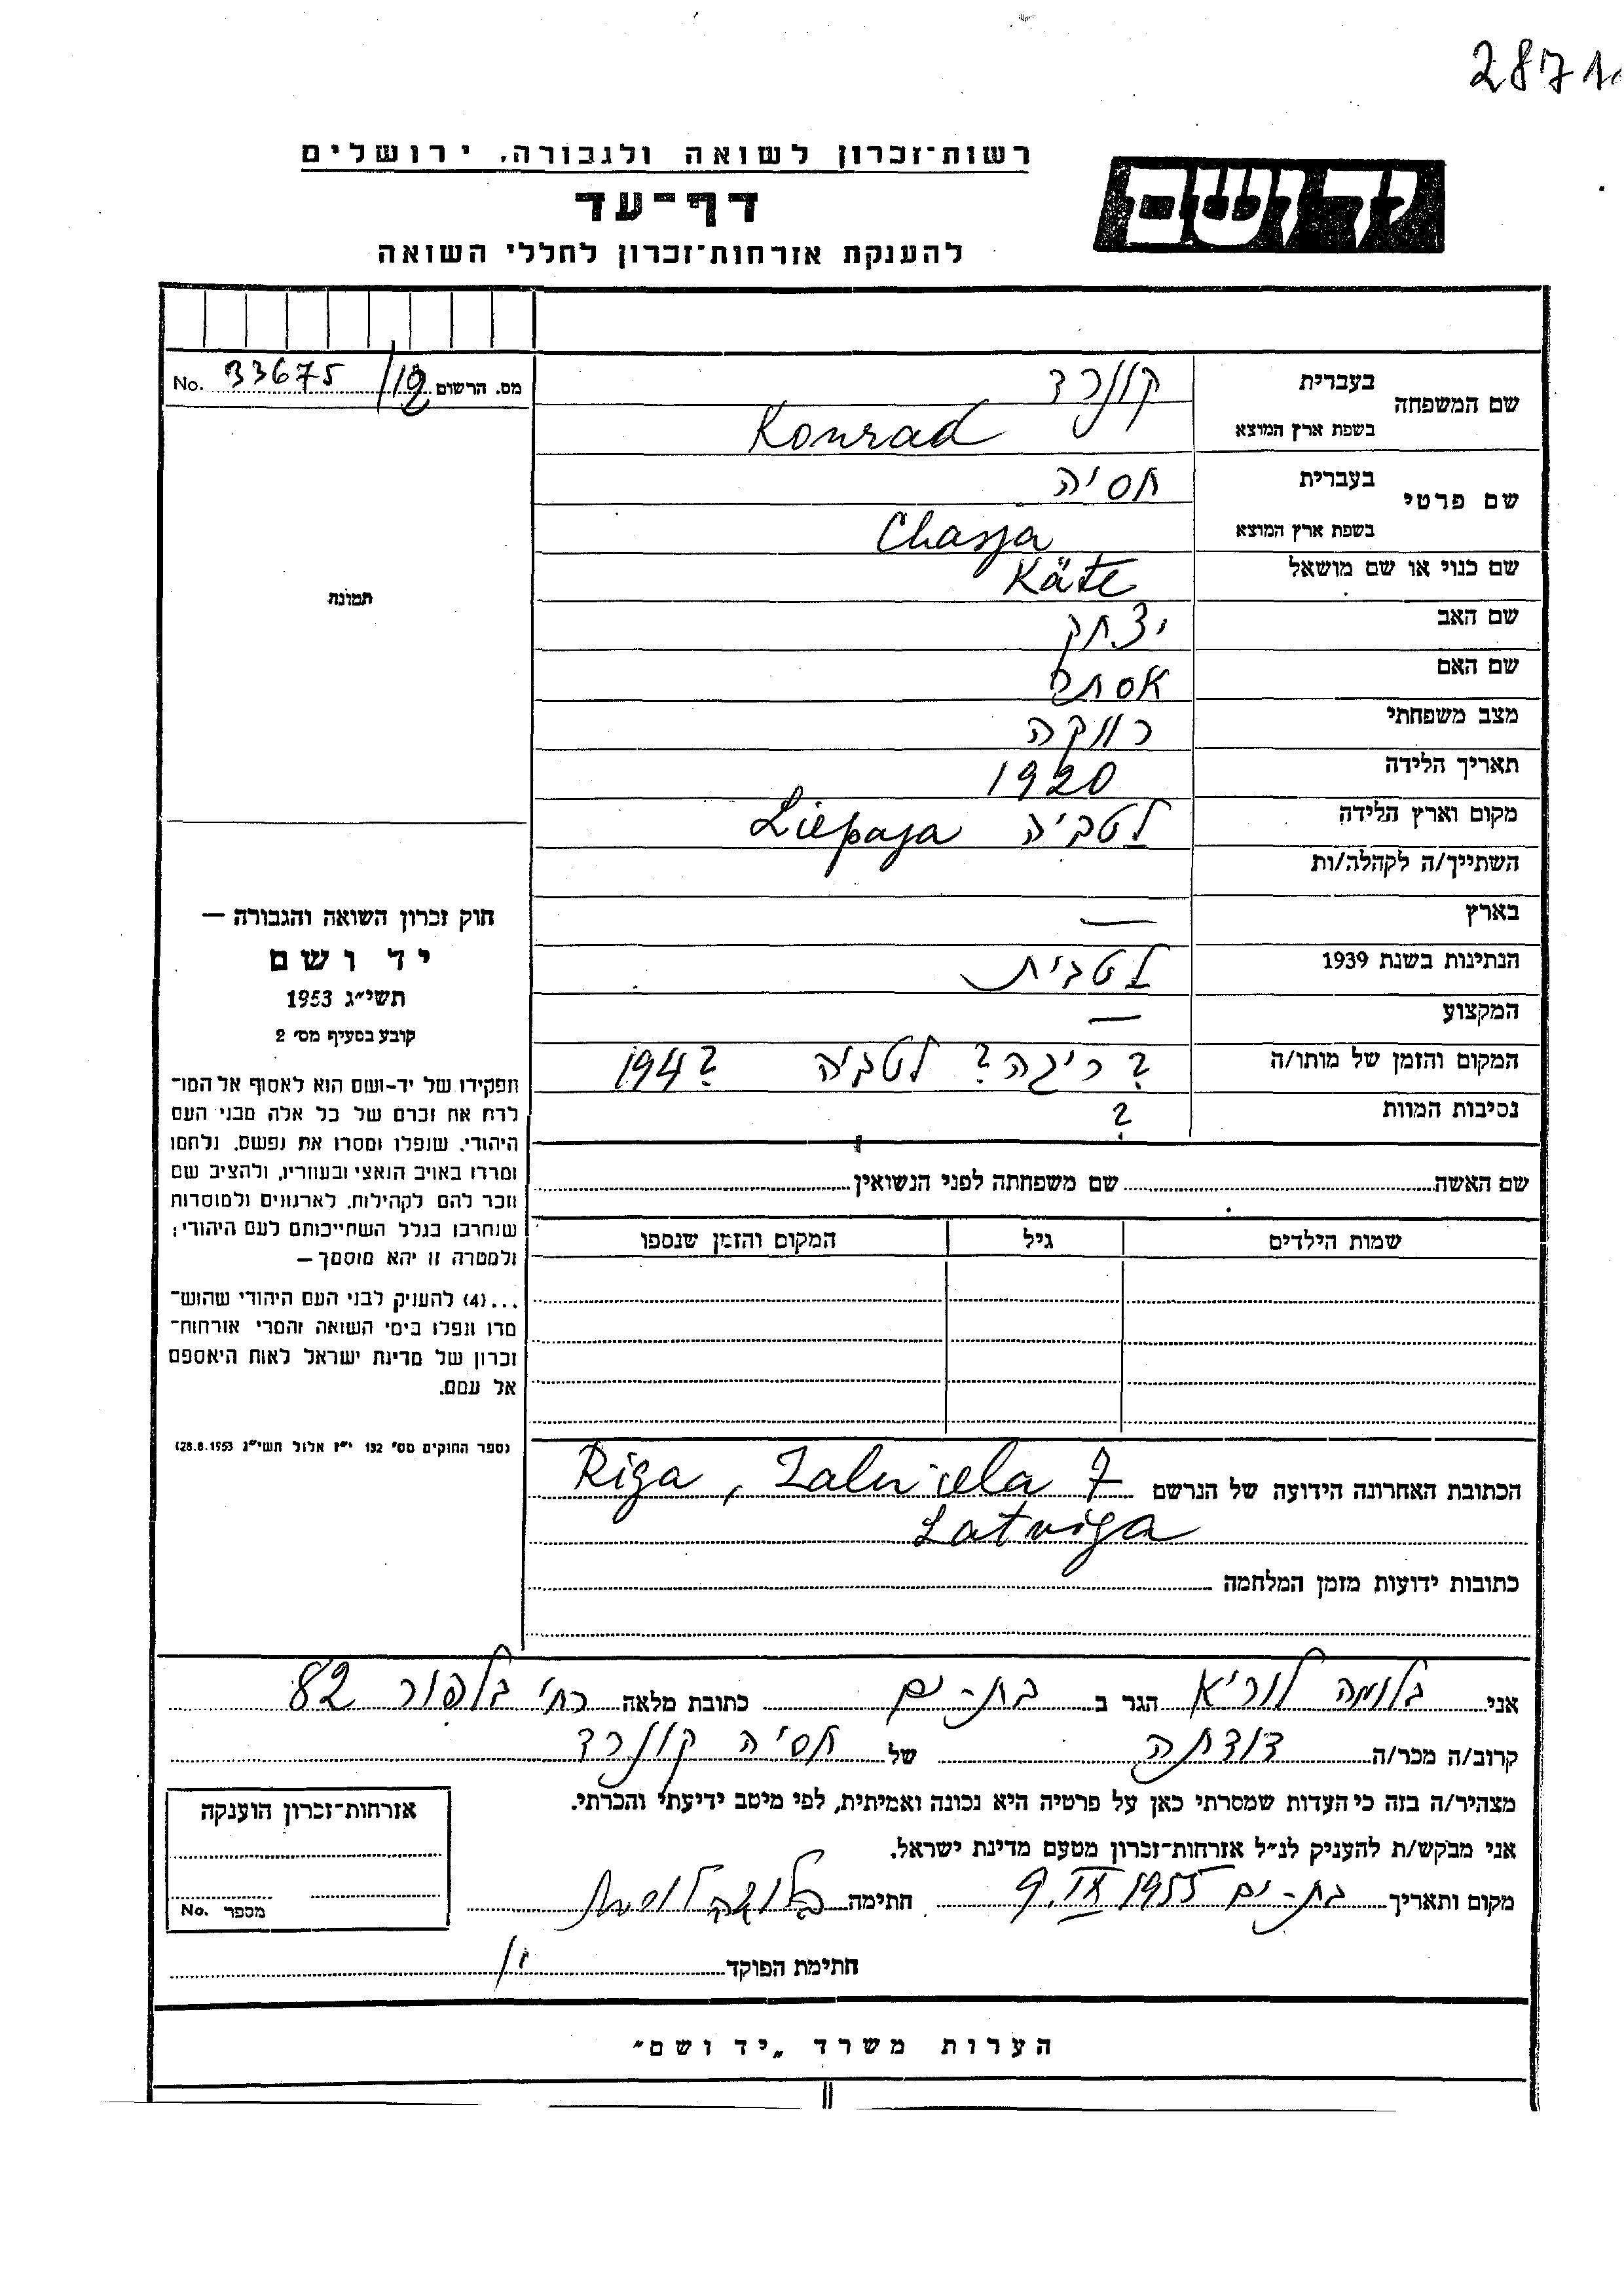 2871
רשות־זכרון לשואה ולגבורה, ירושלים
יד ושם
דף־עד
להענקת אזרחות־זכרון לחללי השואה
מס. הרשום 33675/12 No.
שם המשפחה בעברית קונרד
בשפת ארץ המוצא Konrad
שם פרטי בעברית חסיה
בשפת ארץ המוצא Chasja
שם כנוי או שם מושאל Käte
תמונה
שם האב יצחק
שם האם אסתר
מצב משפחתי רווקה
תאריך הלידה 1920
מקום וארץ הלידה לטביה Liepaja
השתייך/ה לקהלה/ות
בארץ —
הנתינות בשנת 1939 לטבית
המקצוע —
המקום והזמן של מותו/ה ? ריגה? לטביה 194?
נסיבות המוות ?
שם האשה שם משפחתה לפני הנשואין
שמות הילדים גיל המקום והזמן שנספו
חוק זכרון השואה והגבורה —
יד ושם
תשי״ג 1953
קובע בסעיף מס׳ 2
תפקידו של יד-ושם הוא לאסוף אל המו־
לדת את זכרם של כל אלה מבני העם
היהודי, שנפלו ומסרו את נפשם, נלחמו
ומרדו באויב הנאצי ובעוזריו, ולהציב שם
וזכר להם לקהילות, לארגונים ולמוסדות
שנחרבו בגלל השתייכותם לעם היהודי;
ולמטרה זו יהא מוסמך—
...(4) להעניק לבני העם היהודי שהוש־
מדו ונפלו בימי השואה והמרי אזרחות־
זכרון של מדינת ישראל לאות היאספם
אל עמם.
(ספר החוקים מס׳ 132 י״ז אלול תשי״ג 28.8.1953)
הכתובת האחרונה הידועה של הנרשם Riga, iela 7
Latvija
כתובות ידועות מזמן המלחמה
אני בלומה לוריא הגר ב בת-ים כתובת מלאה רח׳ בלפור 82
קרוב/ה מכר/ה דודתה של חסיה קונרד
מצהיר/ה בזה כי העדות שמסרתי כאן על פרטיה היא נכונה ואמיתית, לפי מיטב ידיעתי והכרתי.
אני מבקש/ת להעניק לנ״ל אזרחות־זכרון מטעם מדינת ישראל.
מקום ותאריך בת-ים 9.IX 1955 חתימה
אזרחות־זכרון הוענקה
מספר No.
חתימת הפוקד
הערות משרד „יד ושם״